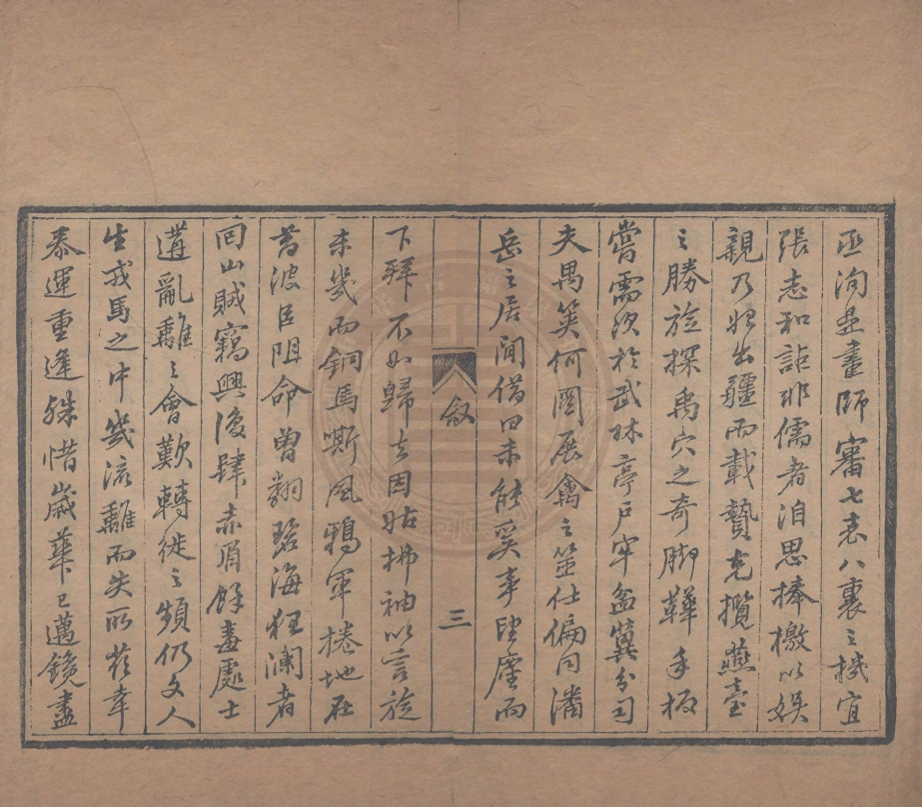 亟洵是畫師審七表八裏之機宜
張志和詎非儒者洎思捧檄以娛
親乃始出疆而載贄克攬燕臺
之勝旋探禹穴之奇腳鞾手板
嘗需次於武林亭戶牢盆冀分司
夫禺筴何圖展禽之筮仕偏同潘
岳之居閒借曰未能奚事望塵而
叙
三
下拜不如歸去因姑拂袖以言旋
未幾而銅馬嘶風鴉軍捲地在
昔波臣阻命曾翻碧海狂瀾者
回山賊竊興復肆赤眉餘毒處士
遘亂離之會歎轉徙之頻仍文人
生戎馬之中幾流離而失所茲幸
泰運重逢殊惜歲華已邁鏡盡